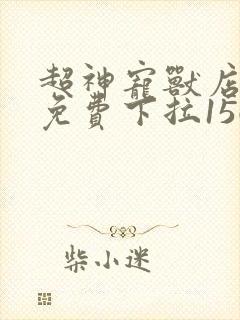 超神寵獸店
免費下拉15
柴小迷